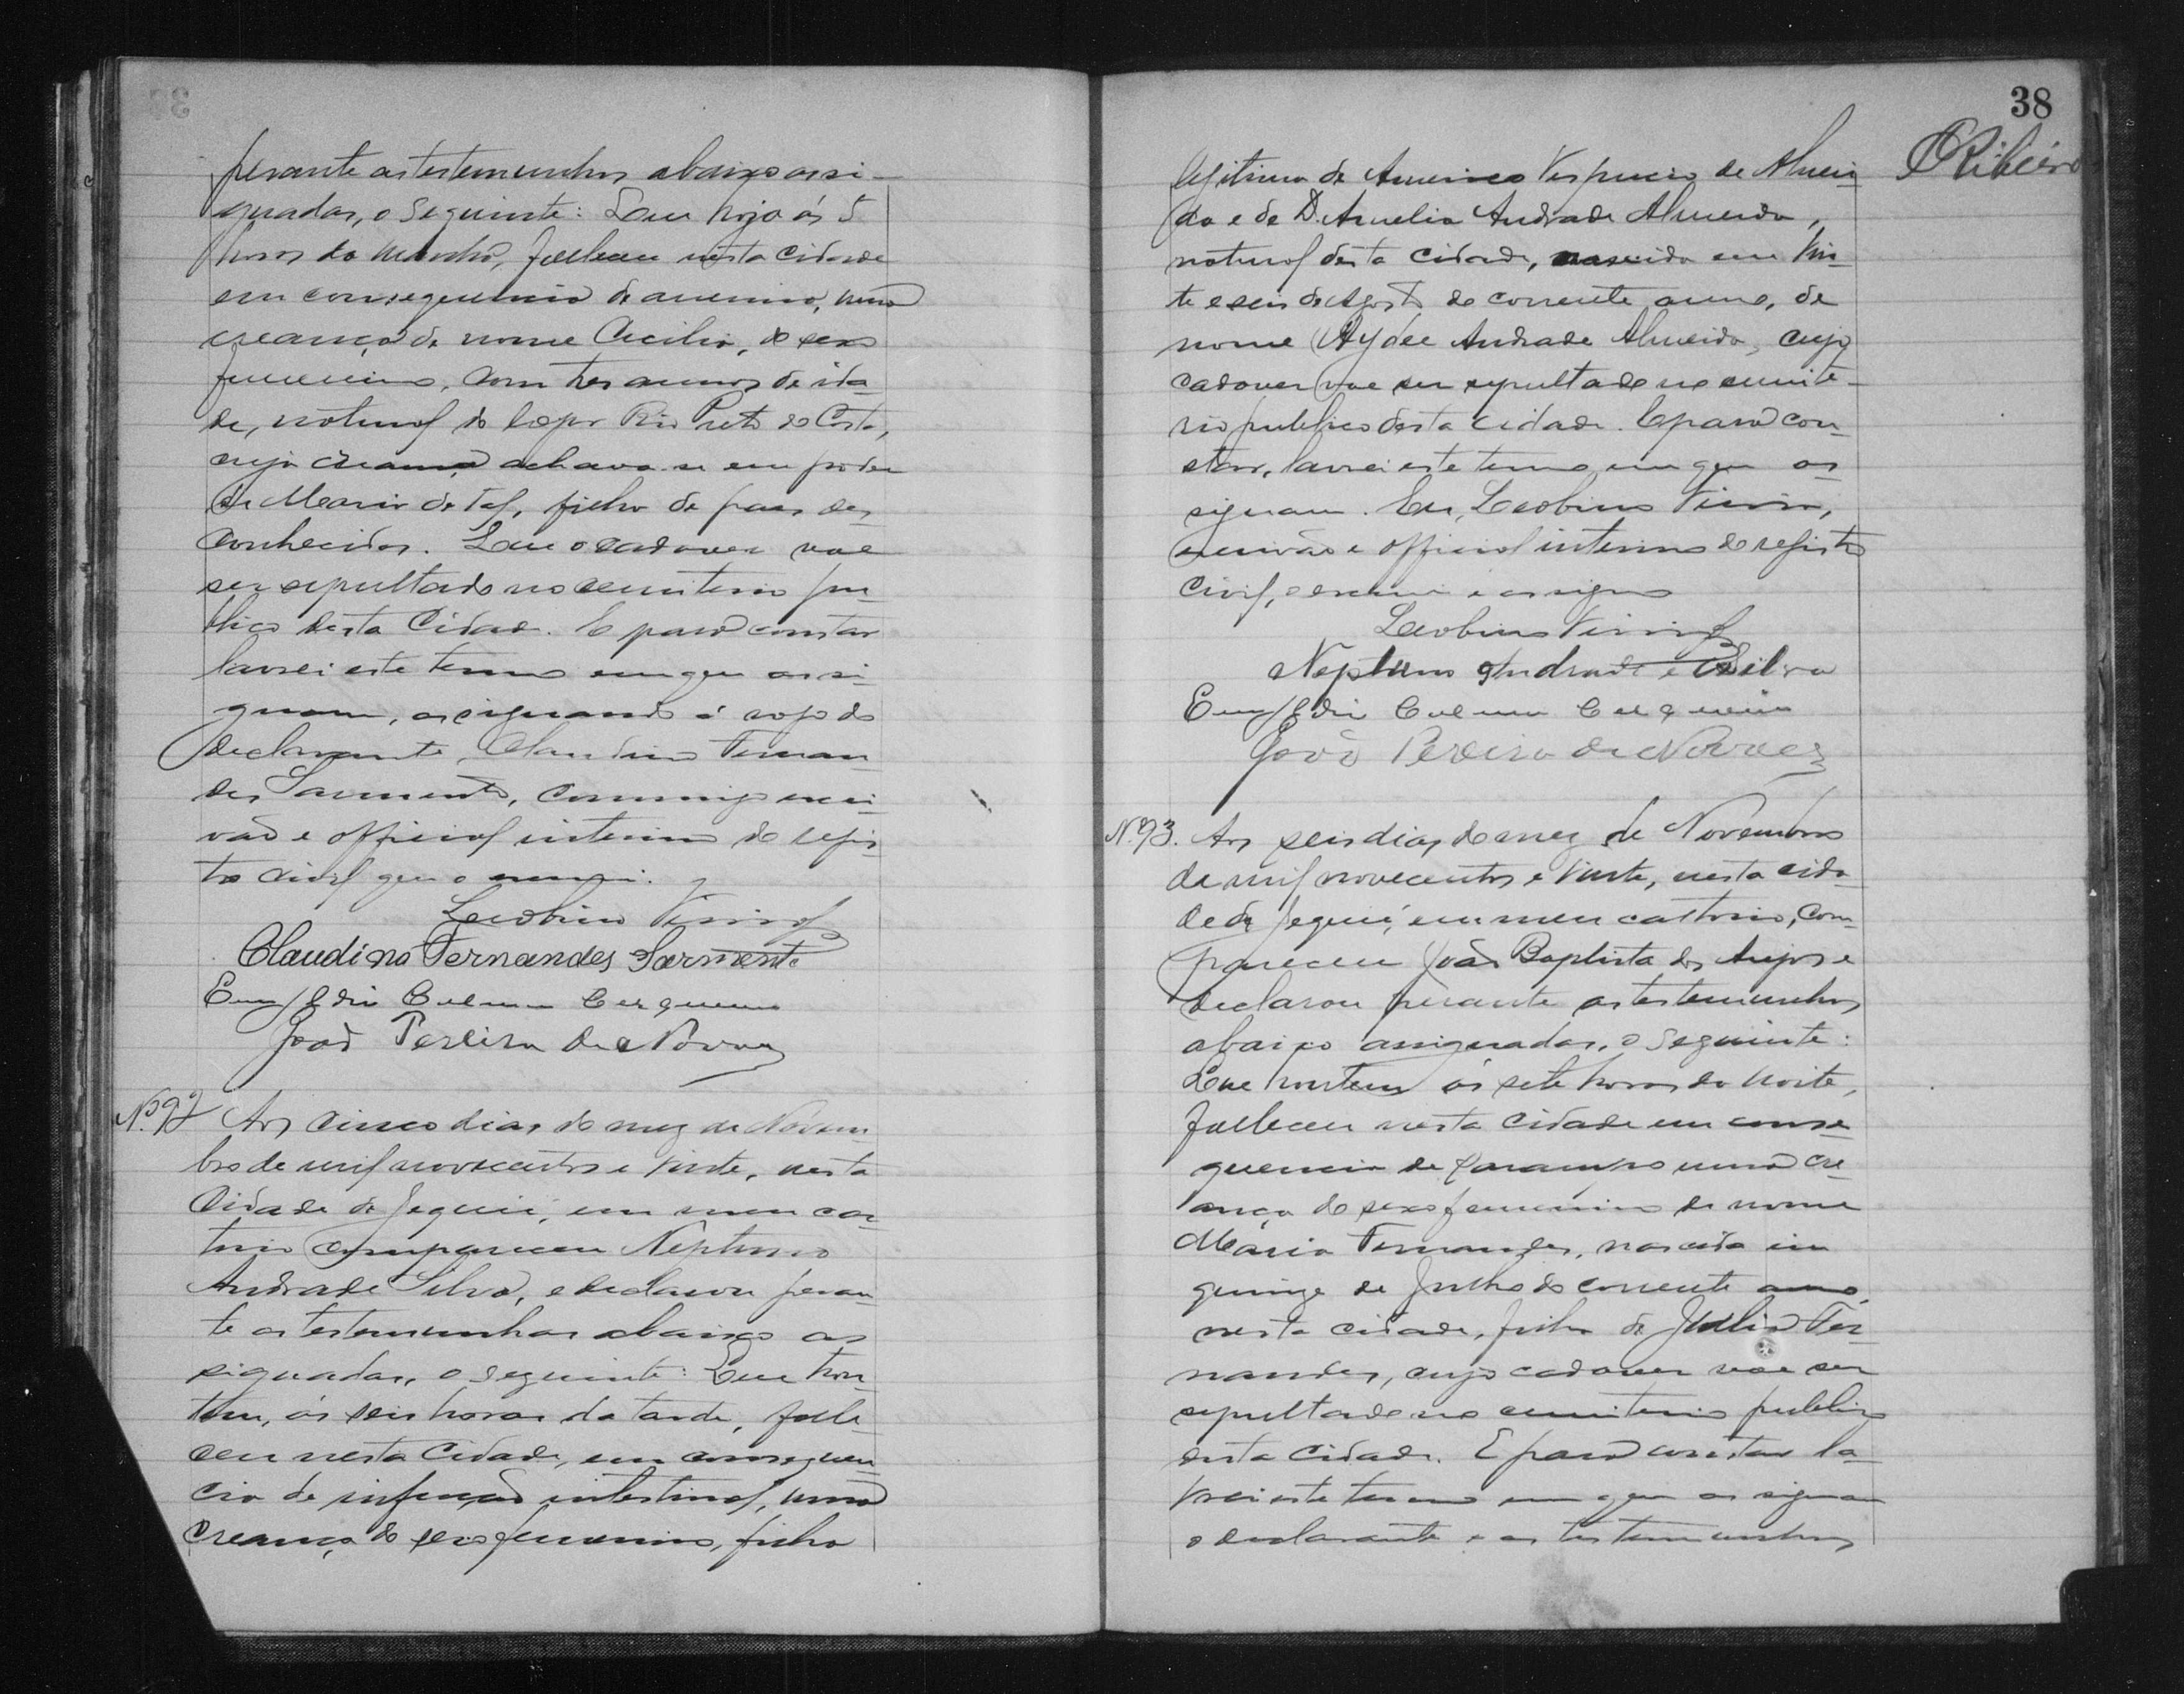 perante as testemunhas abaixo assi-
gnadas, o seguinte: Que hoje ás 5
horas da manhã, falleceu nesta cidade
em consequencia de anemia, uma
creança de nome Cecilia, do sexo
femenino, com tres annos de ida-
de, natural do logar Rio Preto do Costa,
cuja creança achava-se em poder
de Maria de tal, filha de paes des-
conhecidos. Que o cadaver vae
ser sepultado no cemiterio pu-
blico desta Cidade. E para constar
lavrei este termo em que assi-
gnam, assignando á rogo do
declarante, Claudino Fernan-
des Sarmento, commigo escri-
vão e official interino do regis-
tro civil que o escrevi.
Leobino
Claudino Fernandes Sarmento
Cerqueira
João Pereira de Novaes
Nº 92 Aos cinco dias do mez de Novem-
bro de mil novecentos e vinte, nesta
Cidade de Jequié, em meu car-
torio compareceu Neptuno
Andrade Silva, e declarou peran-
te as testemunhas abaixo as-
signadas, o seguinte: Que hon-
tem, ás seis horas da tarde, falle-
ceu nesta Cidade, em consequen-
cia de infecção intestinal, uma
creança do sexo femenino, filha
38
Ribeiro
legitima de Americo Vespucio de Almei-
da e de D. Amelia Andrade Almeida,
natural desta cidade, nascida em vin-
te e seis de Agosto do corrente anno, de
nome Aydée Andrade Almeida, cujo
cadaver vae ser sepultado no cemite-
rio publico desta cidade. E para con-
star, lavrei este termo em que as-
signam. Eu, Leobino
escrivão e official interino do registro
civil, o escrevi e assigno
Leobino
Neptuno Andrade e Silva
Cerqueira
João Pereira de Novaes
Nº 93. Aos seis dias do mez de Novembro
de mil novecentos e vinte, nesta cida-
de de Jequié, em meu cartorio, com-
pareceu João Baptista dos Anjos e
declarou perante as testemunhas
abaixo assignadas, o seguinte:
Que hontem ás sete horas da noite,
falleceu nesta cidade em conse-
quencia de sarampo uma cre-
ança do sexo femenino de nome
Maria Fernandes, nascida em
quinze de Julho do corrente anno,
nesta cidade, filha de Julia Fer-
nandes, cujo cadaver vae ser
sepultado no cemiterio publico
desta cidade. E para constar la-
vrei este termo em que assignam
o declarante e as testemunhas